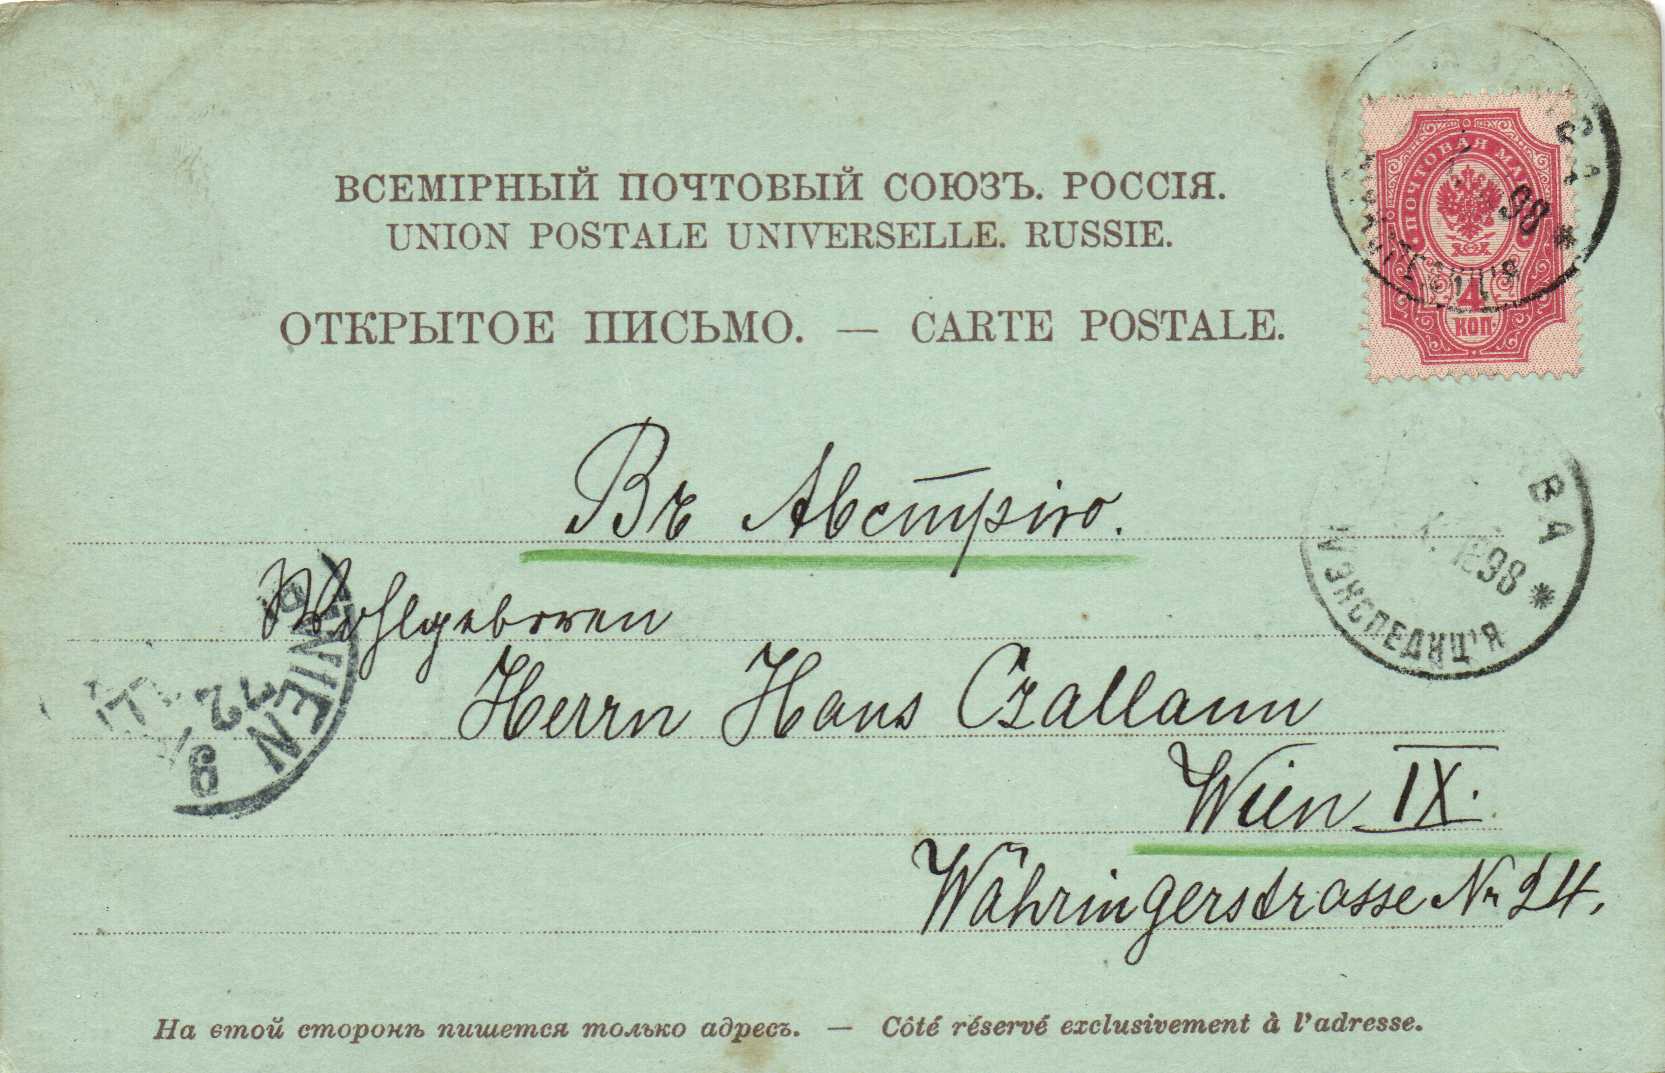 ВСЕМІРНЫЙ ПОЧТОВЫЙ СОЮЗЪ. РОССІЯ.
UNION POSTALE UNIVERSELLE. RUSSIE.
ОТКРЫТОЕ ПИСЬМО. — CARTE POSTALE.
ПОЧТОВАЯ МАР
4
КОП.
98
Въ Австрію.
ВА
1898
ЭКСПЕДИЦІЯ
Wohlgeboren
Herrn Hans Czallann
WIEN 9
72
Wien IX.
Währingerstrasse Nr 24.
На етой сторонѣ пишется только адресъ. — Côté réservé exclusivement à l'adresse.